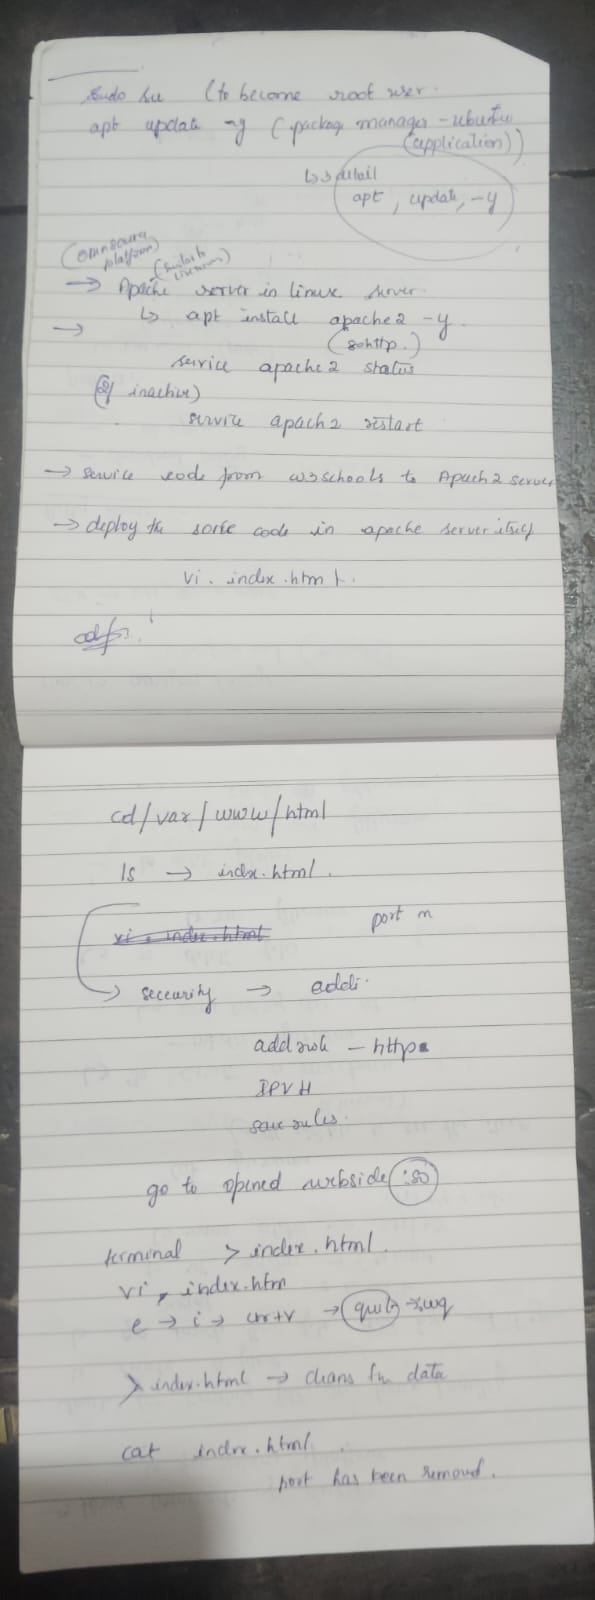 sudo su (to become root user.
apt update -y (package manager - ubuntu
(application))
↳ 3 detail
apt, update, -y
(opensource
platform)
→ Apache server in linux server.
↳ apt install apache2 -y.
→
(80 http.)
service apache2 status
(if inactive)
service apach2 restart
→ service code from w3schools to Apach2 server
→ deploy the sorce code in apache server itself
vi. index.html.
cd/var/www/html
ls → index.html.
vi. index.html
port n
→ seccurity → addi.
add rule - http
IPV4
save rules.
go to opened webside :80
terminal > index.html.
vi, index.htm
e → i → ctr+v → quit → :wq
> index.html → cleans the data
cat index.html.
port has been removed.